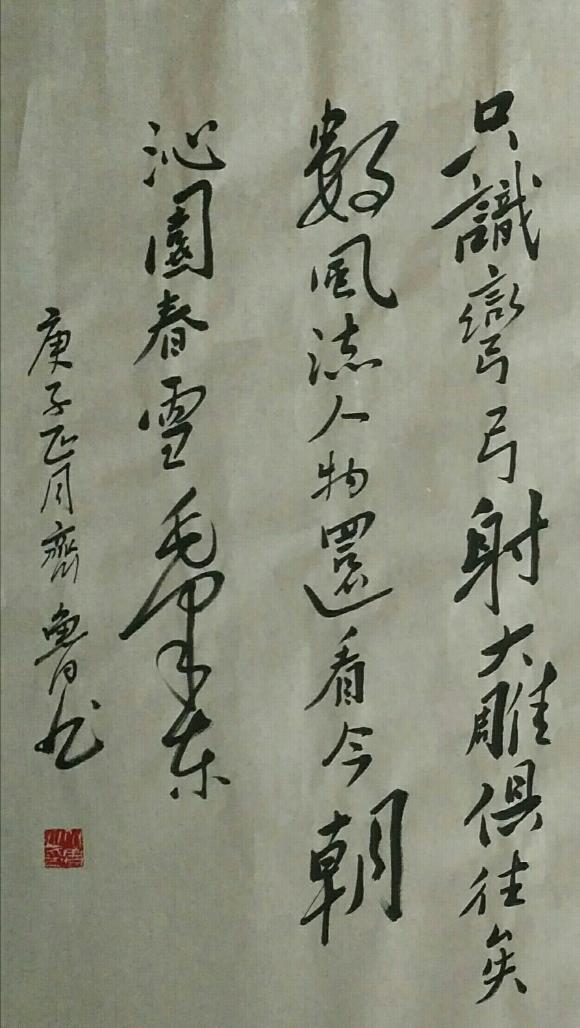 只識彎弓射大雕俱往矣
數風流人物還看今朝
沁園春雪毛澤东
庚子正月齊魯书